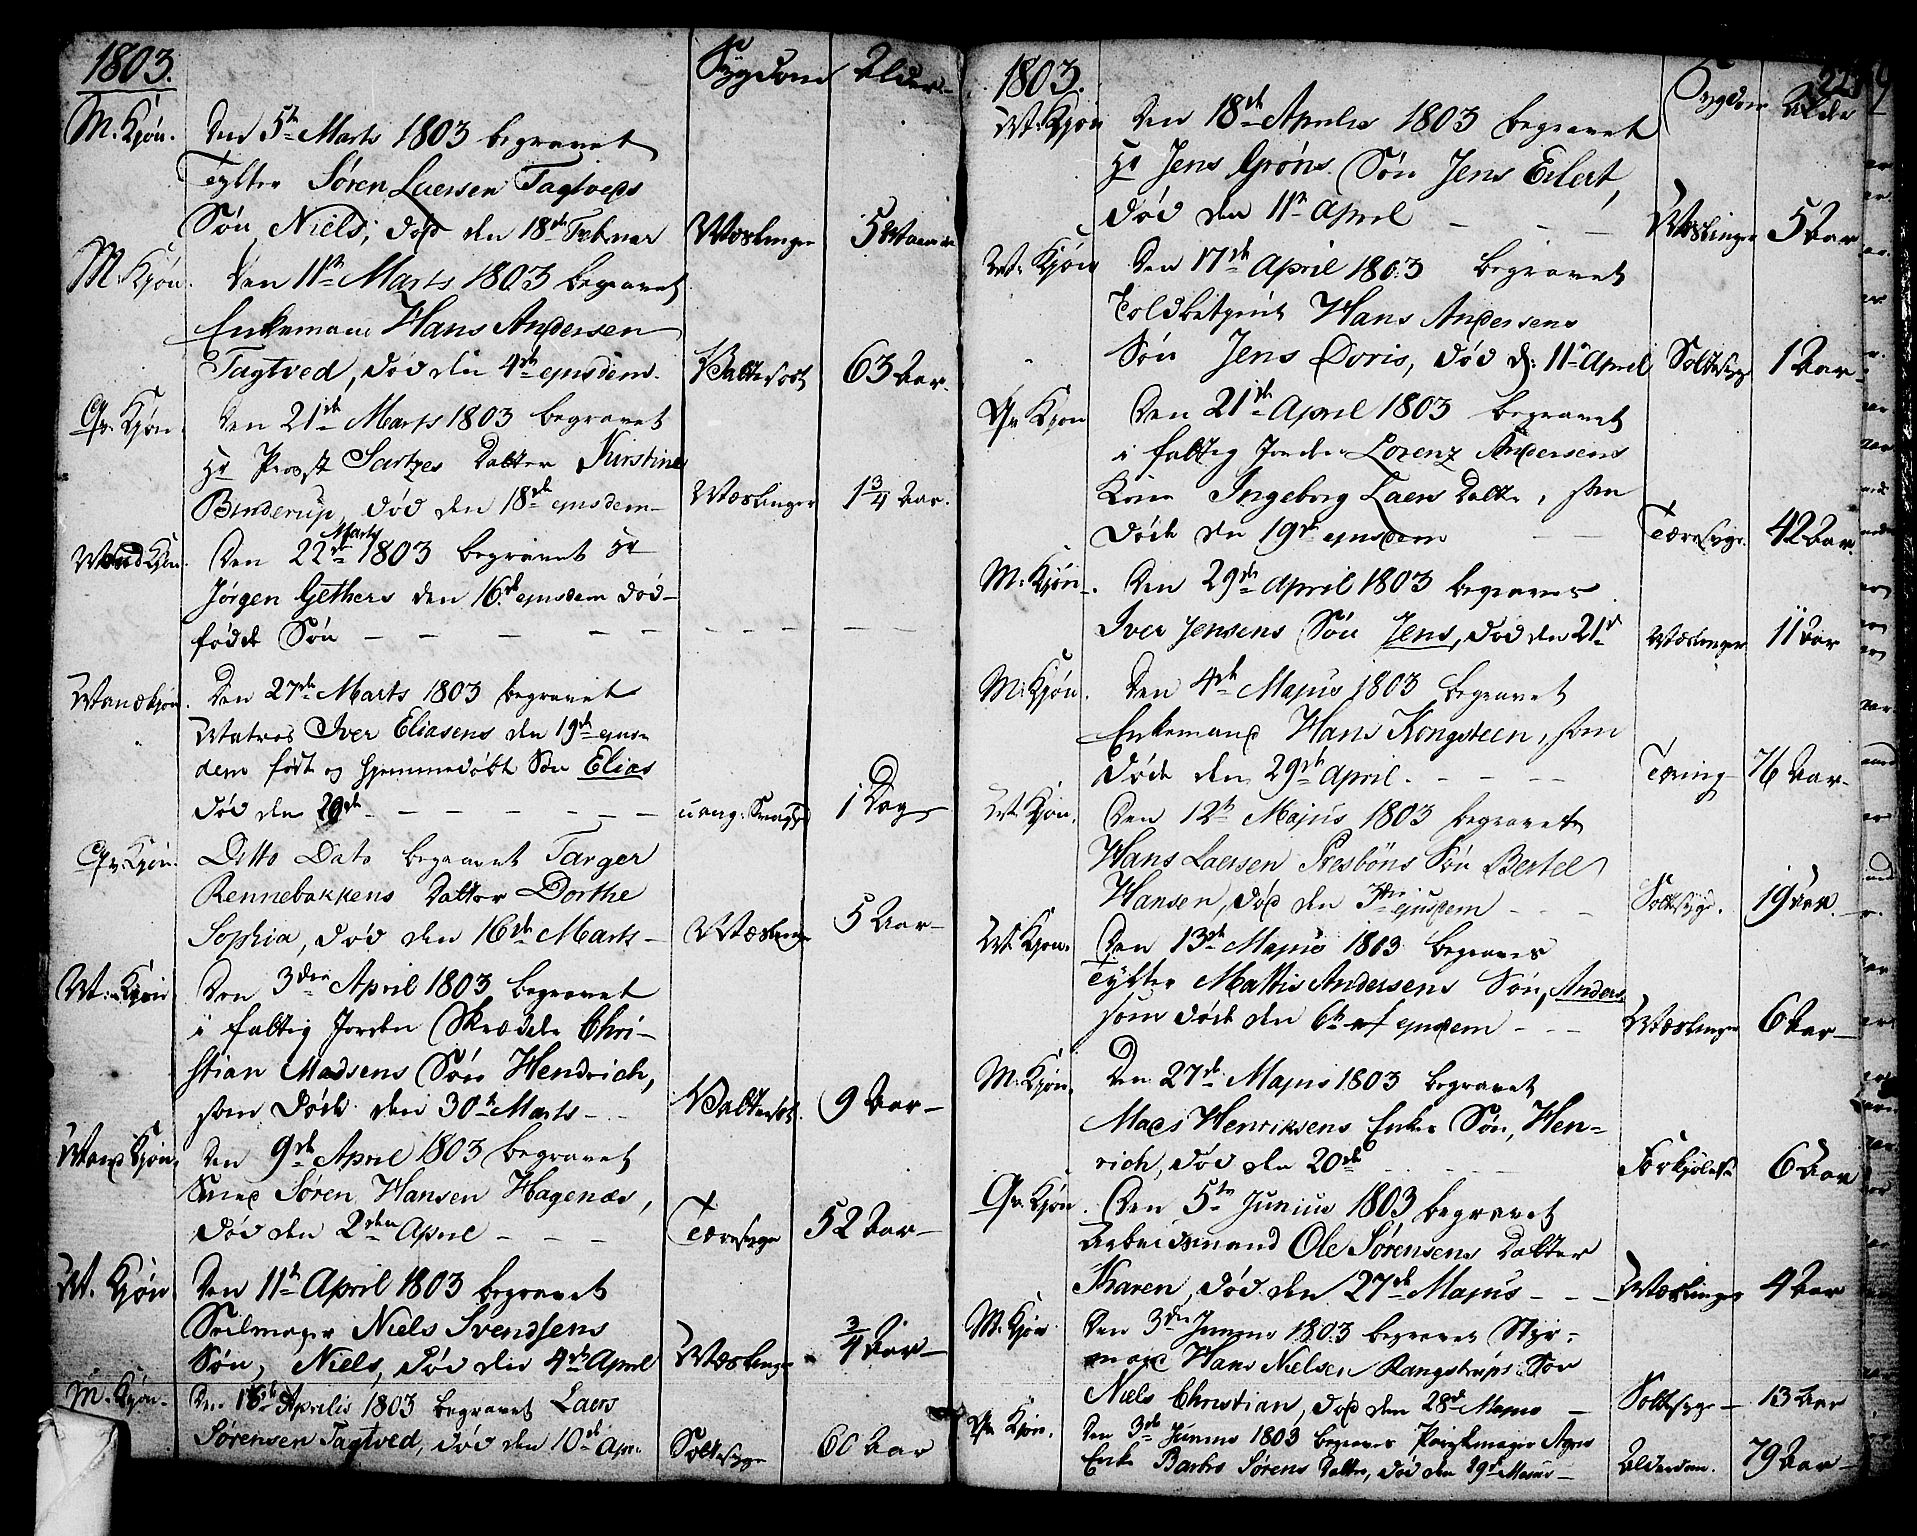 1803.
Sygdom Alder
M. Kjøn. Den 5te Marts 1803 begravet
Søren Laersen Tagtveds
Søn, Niels, død den 18de Februar Mæslinger 5
M. Kjøn. Den 11te Marts 1803 begravet
Enkemand Hans Andersen
Tagtved, død den 4de ejusdem. 63 Aar.
Qv. Kjøn. Den 21de Marts 1803 begravet
Hr Provst Datter Kirstine
Binderup, død den 18de ejusdem Mæslinger 1 3/4 Aar.
Mand Kjøn. Den 22de Marts 1803 begravet Hr
Jørgen Gethers den 16de ejusdem død-
fødde Søn
Mandkjøn. Den 27de Marts 1803 begravet
Matros Iver Eliasens den 19de ejus
dem født og hjemmedøbt Søn Elias
død den 20de 1 Dag
Qv. Kjøn. Ditto Dato begravet Targer
Rennebakkens Datter Dorthe
Sophia, død den 16de Marts Mæslinger 5 Aar
M. Kjøn Den 3die April 1803 begravet
i fattig Jorden Skrædder Chri-
stian Madsens Søn Hendrich,
som døde den 30te Marts 9 Aar
Mand Kjøn. Den 9de April 1803 begravet
Smed Søren Hansen Hagenæs,
død den 2den April Tæresyge 52 Aar
M. Kjøn Den 11te April 1803 begravet
Seilmager Niels Svendsens
Søn, Niels, død den 4de April Mæslinger 3/4 Aar
M. Kjøn. Den Aprilis 1803 begravet Laers
Sørensen Tagtved, død den 10de Apr. Sottesyge 60 Aar
1803.
Sygdom Alder
M. Kjøn Den 18de Aprilis 1803 begravet
Hr Jens Grøns Søn Jens Eilert,
død den 11te April Mæslinger 5 Aar
M. Kjøn Den 17de April 1803 begravet
Toldbetjent Hans Andersens
Søn Jens Doris, død d: 11te April Sottesyge 1 Aar
Qv Kjøn Den 21de April 1803 begravet
i fattig Jorden Lorenz Andersens
Kone Ingeborg Laers Datter, som
døde den 19de ejusdem Tæresyge. 42 Aar.
M: Kjøn. Den 29de April 1803 begraves
Iver Jensens Søn Jens, død den 21de Mæslinger 11 Aar
M: Kjøn. Den 4de Majus 1803 begravet
Enkemand Hans Kongsteen, som
døde den 29de April. Tæring 76 Aar
M. Kjøn. Den 12te Majus 1803 begravet
Hans Laersen Presbøns Søn Bertel
Hansen, død den 3die ejusdem Sottesyge. 19 Aar.
M. Kjøn. Den 13de Majus 1803 begraves
Mattis Andersens Søn, Anders
som døde den 6te ejusdem Mæslinger 6 Aar
M. Kjøn. Den 27de Majus 1803 begravet
Mads Henriksens Enkes Søn, Hen-
rich, død den 20de Forkjølelse 6 Aar
Qv Kjøn. Den 5te Junius 1803 begravet
Arbeidsmand Ole Sørensens Datter
Karen, død den 27de Majus Mæslinger 4 Aar
M. Kjøn Den 3die Junius 1803 begraves Styr-
mand Hans Nielsen Rangstrups Søn
Niels Christian, død den 28de Majus Sottesyge 13 Aar
Qv Kjøn. Den 3die Junius 1803 begraves
Enke Barbro Sørens Datter, død den 29de Majus Alderdom. 79 Aar